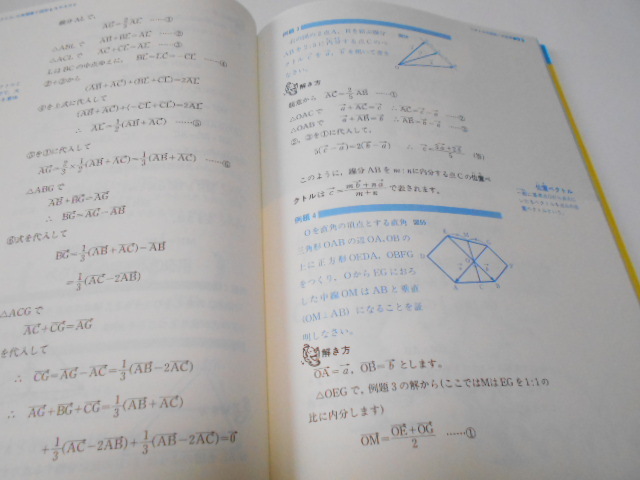 AG=2/3 AL ……①
△ABLで AB+BL=AL ……②
△ACLで AC+CL=AL ……③
LはBCの中点ゆえに, BL=LC=-CL ……④
②+③から
(AB+AC)+(BL+CL)=2AL
④を上式に代入して
(AB+AC)+(-CL+CL)=2AL
∴ AL=1/2(AB+AC) ……⑤
⑤を①に代入して
AG=2/3×1/2(AB+AC)=1/3(AB+AC) ……⑥
△ABGで
AB+BG=AG
∴ BG=AG-AB
⑥式を代入して
BG=1/3(AB+AC)-AB
=1/3(AC-2AB)
△ACGで
AC+CG=AG
を代入して
∴ CG=AG-AC=1/3(AB-2AC)
∴ AG+BG+CG=1/3(AB+AC)
+1/3(AC-2AB)+1/3(AB-2AC)=0
例題3
解き方
題意から AC=2/5 AB ……①
△OACで a+AC=c ∴ AC=c-a ……②
△OABで a+AB=b ∴ AB=b-a ……③
②, ③を①に代入して,
5(c-a)=2(b-a) ∴ c=3a+2b/5 (答)
このように, 線分ABをm:nに内分する点Cの位置ベ
クトルは c=mb+na/m+n で表されます。
位置ベクトル
例題4
Oを直角の頂点とする直角
三角形OABの辺OA, OBの
上に正方形OEDA, OBFG
をつくり, OからEGにおろ
した中線OMはABと垂直
(OM⊥AB)になることを証
明しなさい。
解き方
OA=a, OB=bとします。
△OEGで, 例題3の解から(ここではMはEGを1:1の
比に内分します)
OM=OE+OG/2 ……①